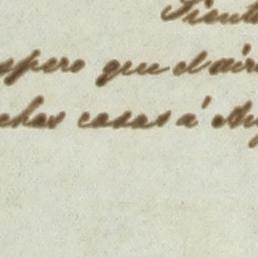 Siento
spero que el dir
chas cosas á Au